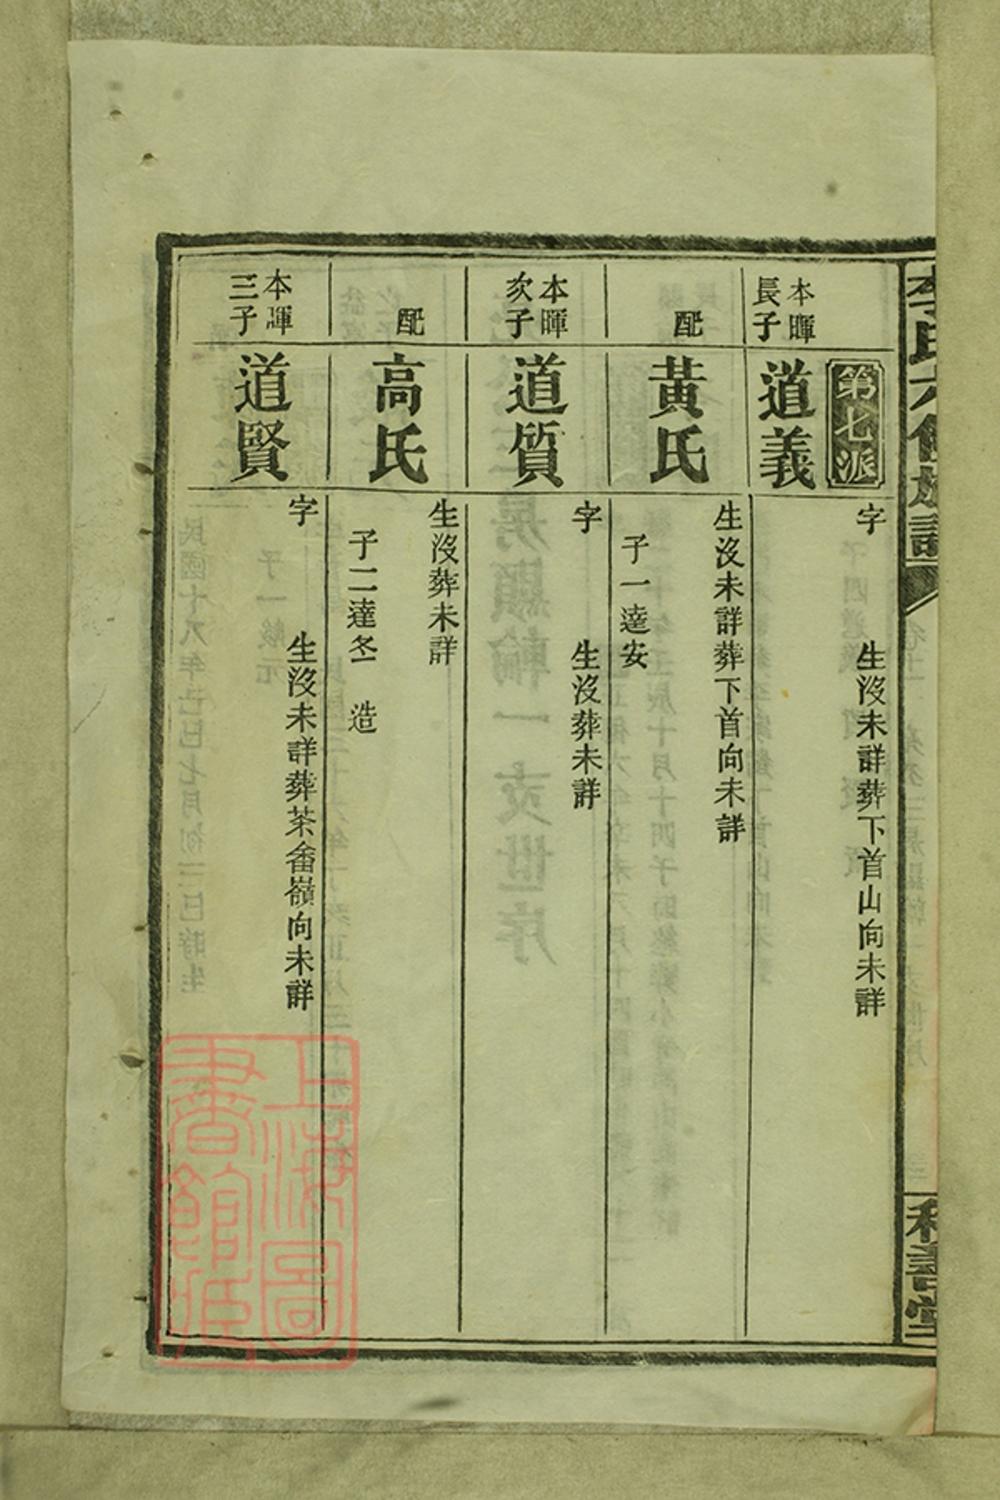 李氏六修族譜
和善堂
第七派
本暉長子
道義
字 生沒未詳葬下首山向未詳
配
黃氏
生沒未詳葬下首向未詳
子一達安
本暉次子
道質
字 生沒葬未詳
配
高氏
生沒葬未詳
子二達冬 造
本暉三子
道賢
字 生沒未詳葬茶畬嶺向未詳
上海圖書館藏